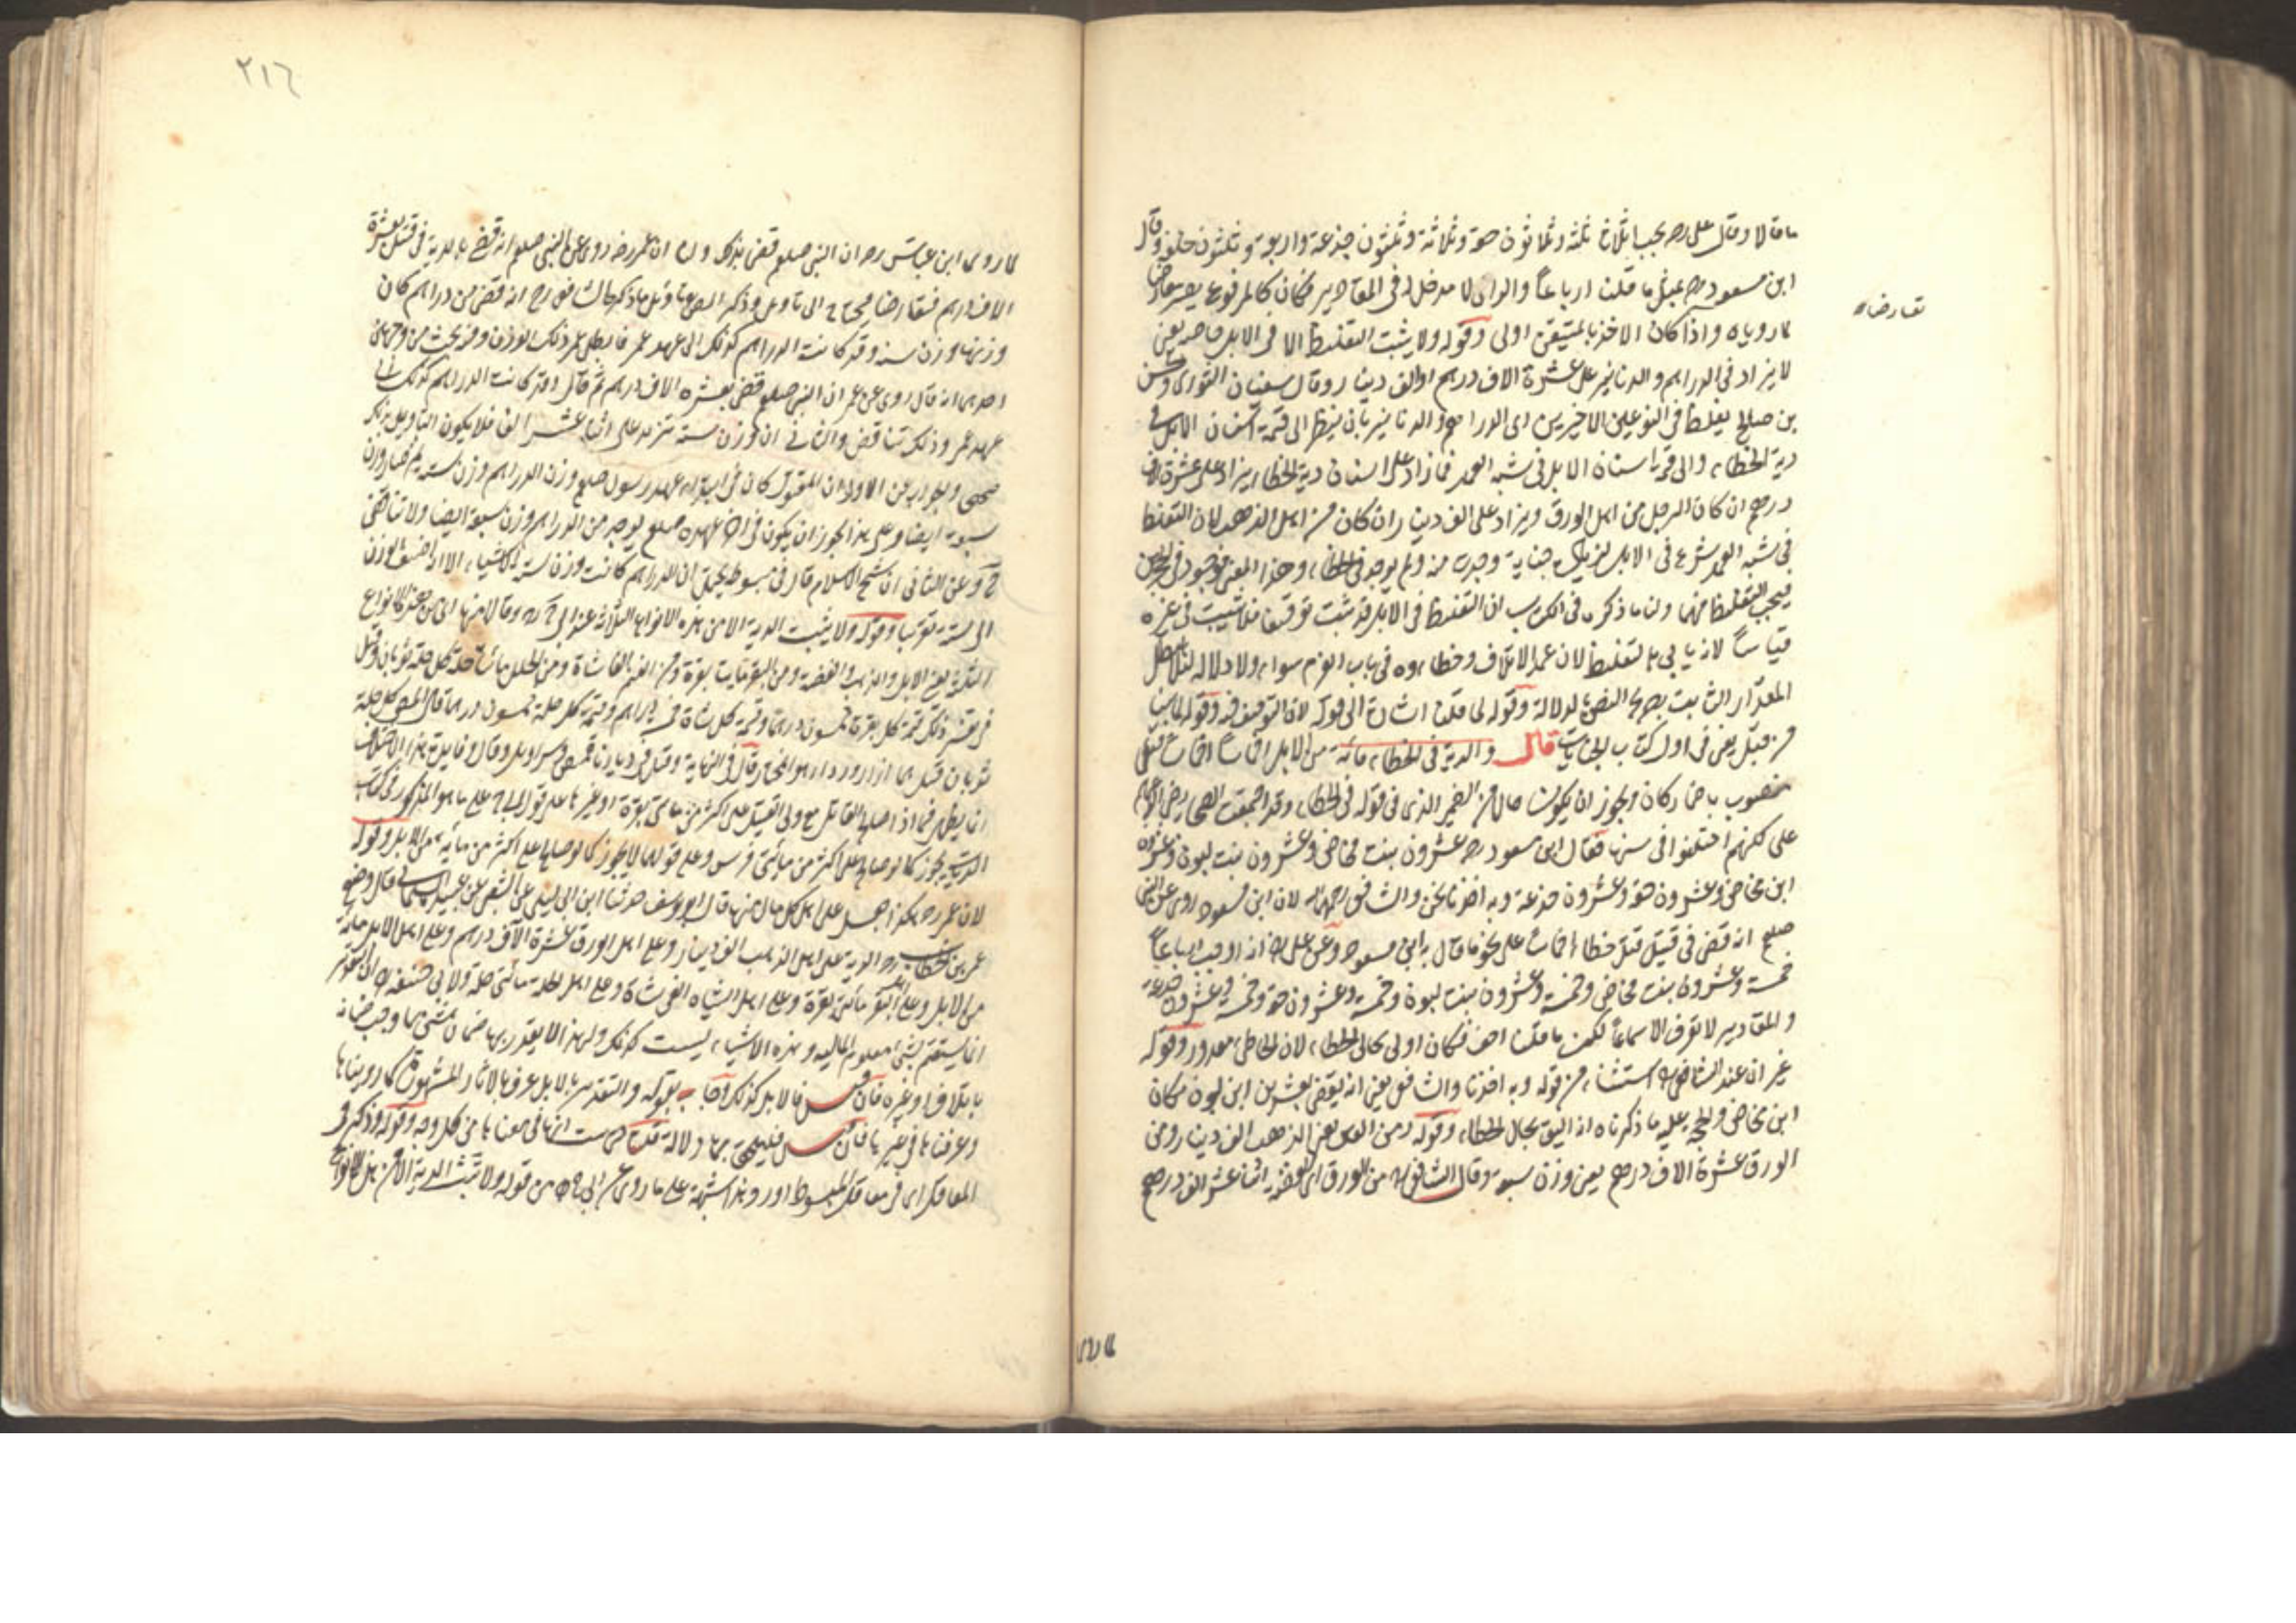 ما قالا وقال على رضه يجب اثلاثا ثلثه وثلاثون حقة وثلاثة وثلثون جذعة واربعة وثلثون خلفة وقال
ابن مسعود رضه بمثل ما قلنا ارباعاً والراى لا مدخل له فى المقادير فكان كالمرفوع يصير معارضا
تعارضا
لما روياه واذا كان الاخذ بالمتيقن اولى وقوله ولا يثبت التغليظ الا فى الابل خاصه يعنى
لا يزاد فى الدراهم والدنانير على عشرة الاف درهم او الف دينار وقال سفيان الثورى والحسن
بن صالح يغلظ فى النوعين الاخيرين اى الدراهم والدنانير بان ينظر الى قيمة اسنان الابل فى
دية الخطاء والى قيمة اسنان الابل فى شبه العمد فما زاد على اسنان دية الخطاء يزاد على عشرة الاف
درهم ان كان الرجل من اهل الورق ويزاد على الف دينار ان كان من اهل الذهب لان التغليظ
فى شبه العمد شرع فى الابل جناية وجدت منه ولم يوجد فى الخطاء وهذا المعنى موجود فى
فيجب التغليظ فيهما ولنا ما ذكره فى الكتاب ان التغليظ فى الابل قد ثبت توقيفا فلا يثبت فى غيره
قياساً لانه يابى التغليظ لان عمد الاتلاف وخطاءه فى باب الغرم سواء ولا دلالة
المقدار الثابت بصريح النص بالدلالة وقوله لما قلنا اشارة الى قوله لان التوقيف فيه وقوله لما بينا
من قبل يعنى فى اول كتاب الجنايات قال والدية فى الخطاء مائة من الابل اخماسا اخماسا
منصوب باضمار كان ويجوز ان يكون حالا من الضمير الذى فى قوله فى الخطاء وقد اجمعت الصحابة رضى الله عنهم
على لكنهم اختلفوا فى سنها فقال ابن مسعود رضه عشرون بنت مخاض وعشرون بنت لبون وعشرون
ابن مخاض وعشرون حقة وعشرون جذعة وبه اخذنا نحن والشافعى رحمه الله لان ابن مسعود روى عن النبى
صلعم انه قضى فى قتيل قتل خطاء اخماسا على نحو ما قال به ابن مسعود وعن على رضه انه اوجب ارباعاً
خمسة وعشرون بنت مخاض وخمسة وعشرون بنت لبون وخمسة وعشرون حقة وخمسة وعشرون جذعة
والمقادير لا تعرف الا سماعا لكن ما قلنا اخف فكان اولى بحال الخطاء لان الخاطئ معذور وقوله
غير ان عند الشافعى رح استثناء من قوله وبه اخذنا والشافعى يعنى انه يقضى بعشرين ابن لبون مكان
ابن مخاض والحجة عليه ما ذكرناه انه اليق بحال الخطاء وقوله ومن العين يعنى الذهب الف دينار ومن
الورق عشرة الاف درهم يعنى وزن سبعة وقال الشافعى رح من الورق اى الفضة اثنا عشر الف درهم
لما روى
٢١٦
لما روى ابن عباس رضه ان النبى صلعم قضى بذلك ولنا ان عمر رضه روى عن النبى صلعم انه قضى بالدية فى قتيل بعشرة
الاف درهم فتعارضا فيحتاج الى تاويل وذكر المصنف تاويل ما ذكره الشافعى رح انه قضى من دراهم كان
وزنها وزن ستة وقد كانت الدراهم كذلك الى عهد عمر فابطل عمر ذلك الوزن وفيه بحث من وجهين
احدهما انه قال روى عن عمر ان النبى صلعم قضى بعشرة الاف درهم ثم قال وقد كانت الدراهم كذلك الى
عهد عمر وذلك تناقض والثانى ان وزن ستة تزيد على اثنا عشر الف فلا يكون التاويل بذلك
صحيحا والجواب عن الاول ان المنقول كان فى ابتداء عهد رسول صلعم وزن الدراهم وزن ستة ثم صار وزن
سبعة ايضا وعلى هذا يجوز ان يكون فى اخر عهده صلعم يوجد من الدراهم وزن سبعة ايضا ولا تناقض
ح وعن الثانى ان شيخ الاسلام قال فى مبسوطه يحتمل ان الدراهم كانت وزن ستة الا شيئا الا انه اضيف الوزن
الى ستة تقريبا وقوله ولا يثبت الدية الا من هذه الانواع الثلاثة عند ابى ح رح وقالا منها اى من هذه الانواع
الثلثة يعنى الابل والذهب والفضة ومن البقر مايتا بقرة ومن الغنم الفا شاة ومن الحلل مائتا حلة كل حلة ثوبان وقيل
فى تفسير ذلك قيمة كل بقرة خمسون درهما وقيمة كل شاة خمسة دراهم وقيمة كل حلة خمسون درهما قال المص كل حلة
ثوبان قيل هما ازار ورداء هو المختار وقال فى النهاية وقيل فى ديارنا قميص وسراويل وقال وفايدة هذا الاختلاف
انما يظهر فيما اذا صالح القاتل مع ولى القتيل على اكثر من مائتى بقرة او غيرها على قول ابى ح على ما هو المذكور فى كتاب
الديات يجوز كما لو صالح على اكثر من مائتى فرس وعلى قولهما لا يجوز كما لو صالح على اكثر من مائة من الابل وقوله
لان عمر رضه هكذا جعل على اهل كل مال منها قال ابو يوسف حدثنا ابن ابى ليلى عن الشعبى عن عبيدة السلمانى قال وضع
عمر بن الخطاب رضه الدية على اهل الذهب الف دينار وعلى اهل الورق عشرة الاف درهم وعلى اهل الابل مائة
من الابل وعلى اهل البقر مائتى بقرة وعلى اهل الشاه الفى شاة وعلى اهل الحلة مائتى حلة ولابى حنيفة رح ان التقدير
انما يستقيم بشئ معلوم المالية وهذه الاشياء ليست كذلك ولهذا لا يقدر بها ضمان شئ مما وجب ضمانه
باتلاف او غيره فان قيل فالابل كذلك اجاب بقوله والتقدير بالابل عرف بالاثار المشهورة كما روينا ها
وعرفنا ها فى غيرها فان قيل فليلحق بها دلالة قلنا ليست انها فى معناها من كل وجه وقوله وذكر فى
المعاقل اى فى معاقل المبسوط اورد هذا شبهة على ما روى عن ابى ح رح من قوله ولا تثبت الدية الا من هذه الانواع